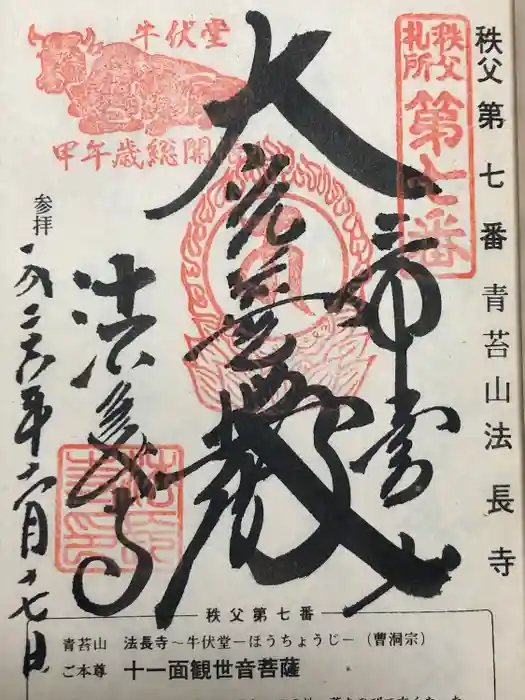 秩父第七番青苔山法長寺
秩父
札所
第七番
牛伏堂
甲午歳総開帳
青苔山
大光普照殿
法長寺
参拝
平成二六年六月十七日
秩父第七番
青苔山 法長寺～牛伏堂－ほうちょうじ－（曹洞宗）
ご本尊 十一面観世音菩薩